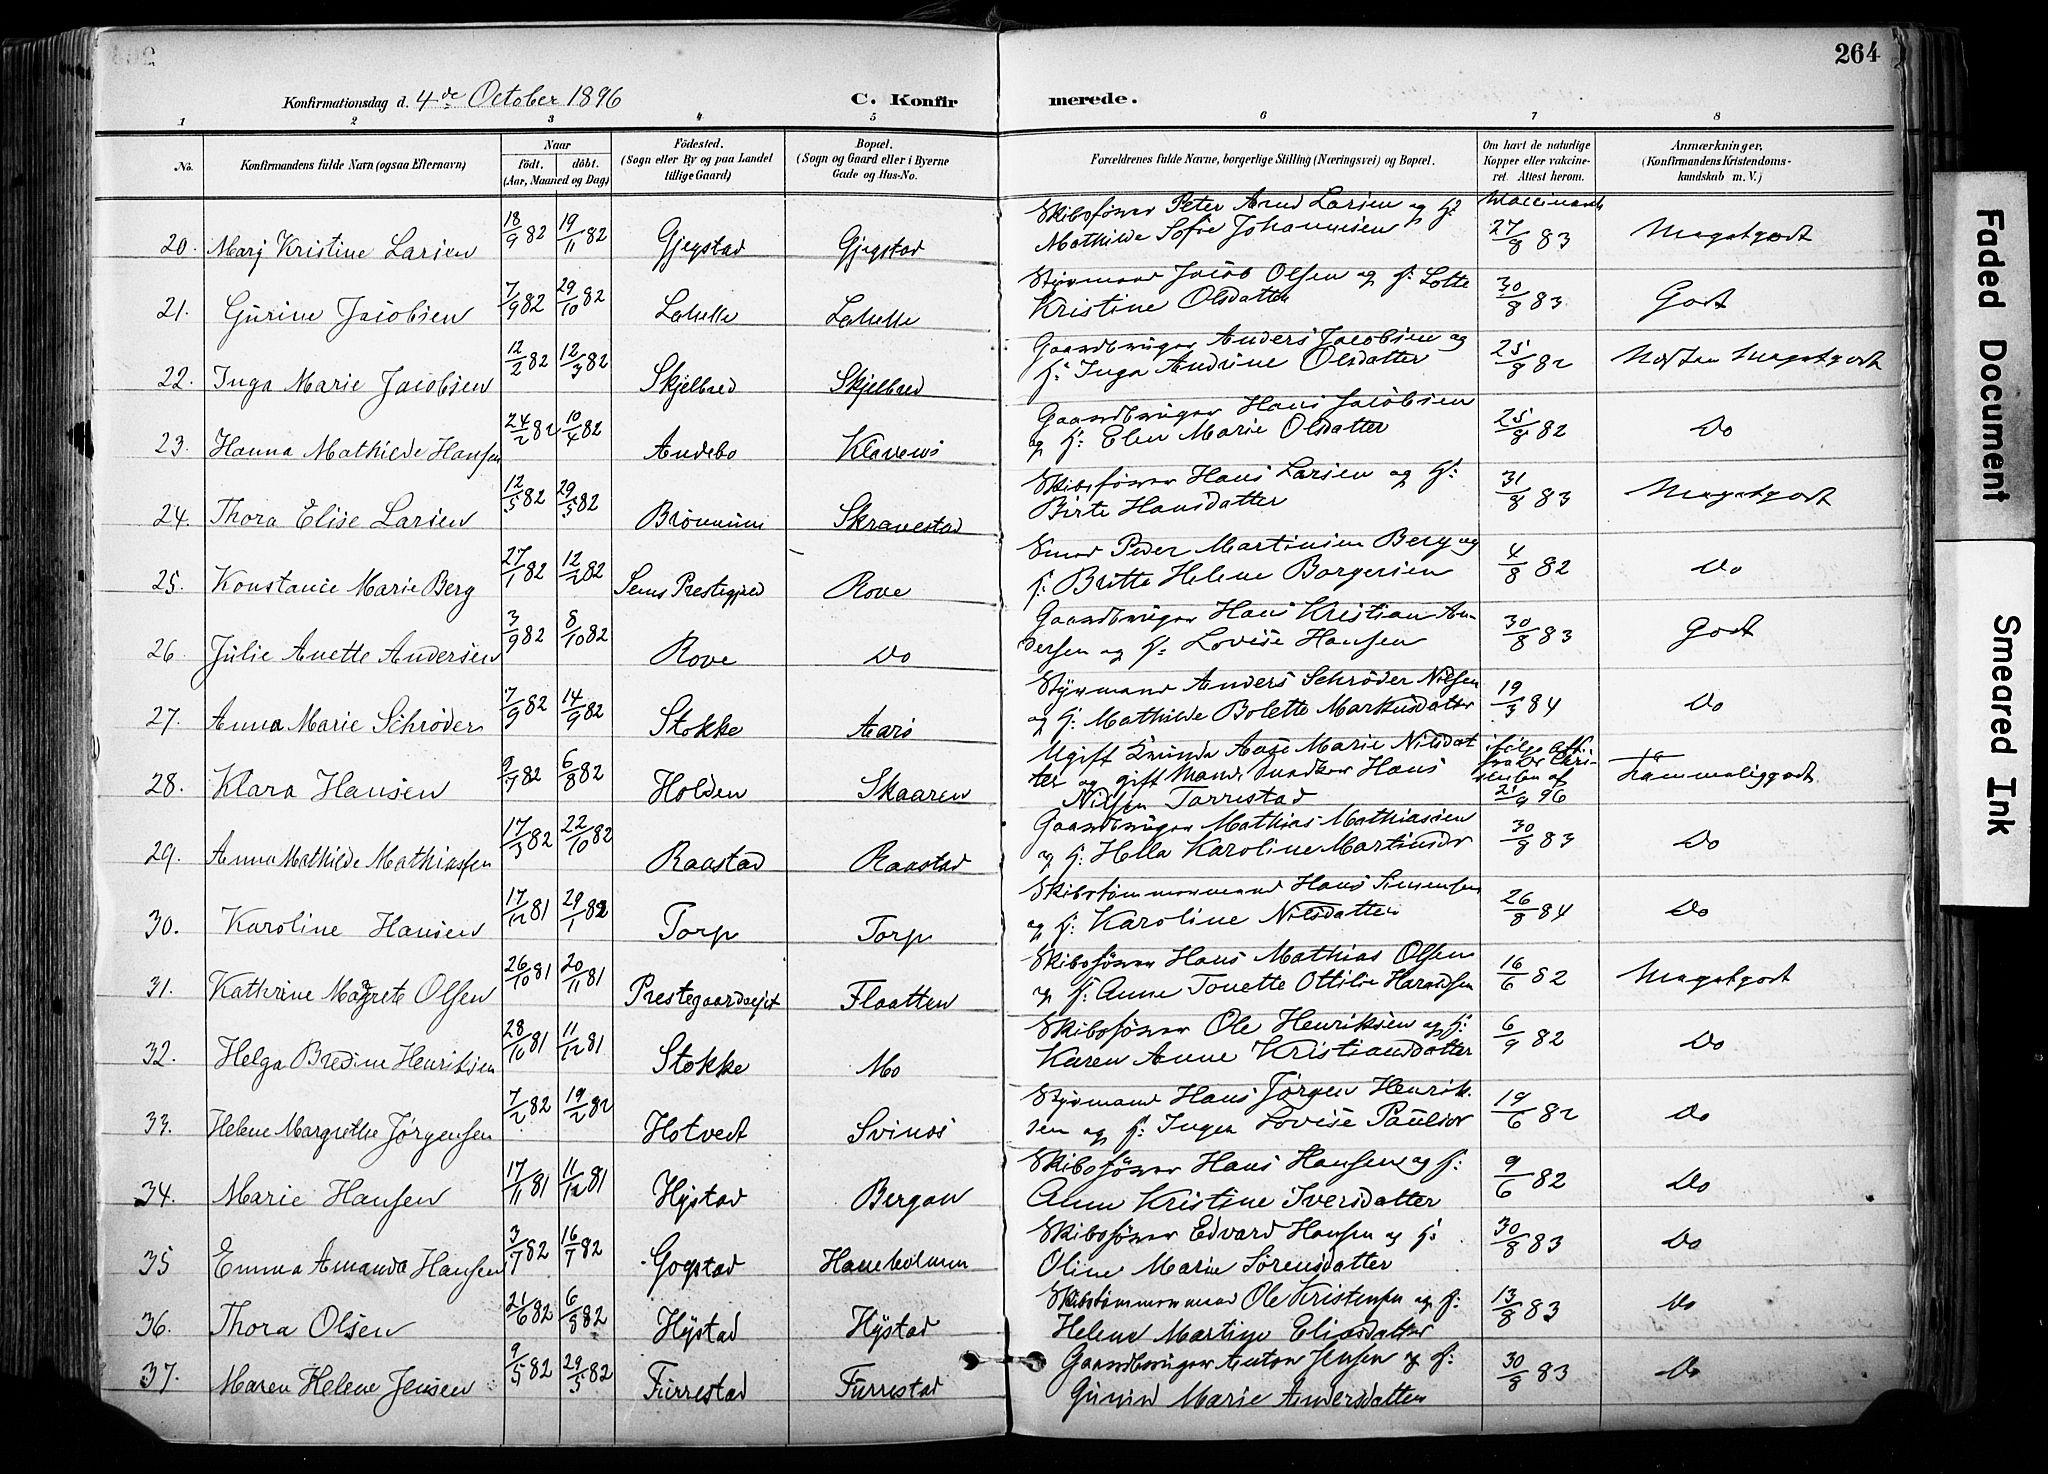 264
Konfirmationsdag d. 4de October 1896
C. Konfirmerede.
1 2 3 4 5 6 7 8
No.
Konfirmandens fulde Navn (ogsaa Efternavn)
Naar
født. døbt.
(Aar, Maaned og Dag)
Fødested.
(Sogn eller By og paa Landet
tillige Gaard)
Bopæl.
(Sogn og Gaard eller i Byerne
Gade og Hus-No.
Forældrenes fulde Navne, borgerlige Stilling (Næringsvei) og Bopæl.
Om havt de naturlige
Kopper eller vakcine-
ret. Attest herom.
Anmærkninger,
(Konfirmandens Kristendoms-
kundskab m. V.)
20. Marj Kristine Larsen 18/9 82 19/11 82 Gjegstad Gjegstad Skibsfører Peter Arnd Larsen og H: Mathilde Sofie Johannesen 27/8 83 Megetgodt
21. Gurine Jacobsen 7/9 82 29/10 82 Lahelle Lahelle Styrmand Jacob Olsen og H: Lotte Kristine Olsdatter 30/8 83 Godt
22. Inga Marie Jacobsen 12/2 82 12/3 82 Skjelbred Skjelbred Gaardbruger Anders Jacobsen og H: Inga Andrine Olsdatter 25/8 82 Næsten Megetgodt
23. Hanna Mathilde Hansen 24/2 82 10/4 82 Andebo Klavenes Gaardbruger Hans Jacobsen og H: Elen Marie Olsdatter 25/8 82 Do
24. Thora Elise Larsen 12/5 82 29/5 82 Brønnum Skravestad Skibsfører Hans Larsen og H: Birte Hansdatter 31/8 83 Megetgodt
25. Konstance Marie Berg 27/1 82 12/2 82 Sems Prestegjeld Rove Smed Peder Martinsen Berg og H: Britte Helene Borgersen 4/8 82 Do
26. Julie Anette Andersen 3/9 82 8/10 82 Rove Do Gaardbruger Hans Kristian An- dersen og H: Lovise Hansen 30/8 83 Godt
27. Anna Marie Schrøder 7/9 82 14/9 82 Stokke Aarø Styrmand Anders Schrøder Nilsen og H: Mathilde Bolette Markusdatter 19/3 84 Do
28. Klara Hansen 9/7 82 6/8 82 Holden Skaaren Ugift Kvinde Aase Marie Nilsdat ter og gift Mand Snedker Hans Nilsen Tarrestad 21/9 96 Taammeliggodt
29. Anna Mathilde Mathiassen 17/3 82 22/10 82 Raastad Raastad Gaardbruger Mathias Mathiassen og H: Hella Karoline Martinsdr 30/8 83 Do
30. Karoline Hansen 17/12 81 29/1 82 Torp Torp Skibstømmermand Hans Simensen og H: Karoline Nilsdatter 26/8 84 Do
31. Kathrine Magrete Olsen 26/10 81 20/11 81 Prestegaardsejet Flaatten Skibsfører Hans Mathias Olsen og H: Anne Tonette Ottilie Haraldsen 16/6 82 Megetgodt
32. Helga Bredine Henriksen 28/10 81 11/12 81 Stokke Mo Skibsfører Ole Henriksen og H: Karen Anne Kristiansdatter 6/9 82 Do
33. Helene Margrethe Jørgensen 7/2 82 19/2 82 Hotvedt Svinøs Styrmand Hans Jørgen Henrik- sen og H: Inger Lovise Paulsdr 19/6 82 Do
34. Marie Hansen 17/11 81 11/12 81 Hystad Bergan Skibsfører Hans Hansen og H: Anne Kristine Iversdatter 9/6 82 Do
35 Emma Amanda Hansen 3/7 82 16/7 82 Gogstad Haneholmen Skibsfører Edvard Hansen og H: Oline Marie Sørensdatter 30/8 83 Do
36. Thora Olsen 21/6 82 6/8 82 Hystad Hystad Skibstømmermand Ole Kristensen og H: Helene Martine Eliasdatter 13/8 83 Do
37. Maren Helene Jensen 9/5 82 29/5 82 Furrestad Furrestad Gaardbruger Anton Jensen og H: Gurine Marie Andersdatter 30/8 83 Do
Faded Document
Smeared Ink